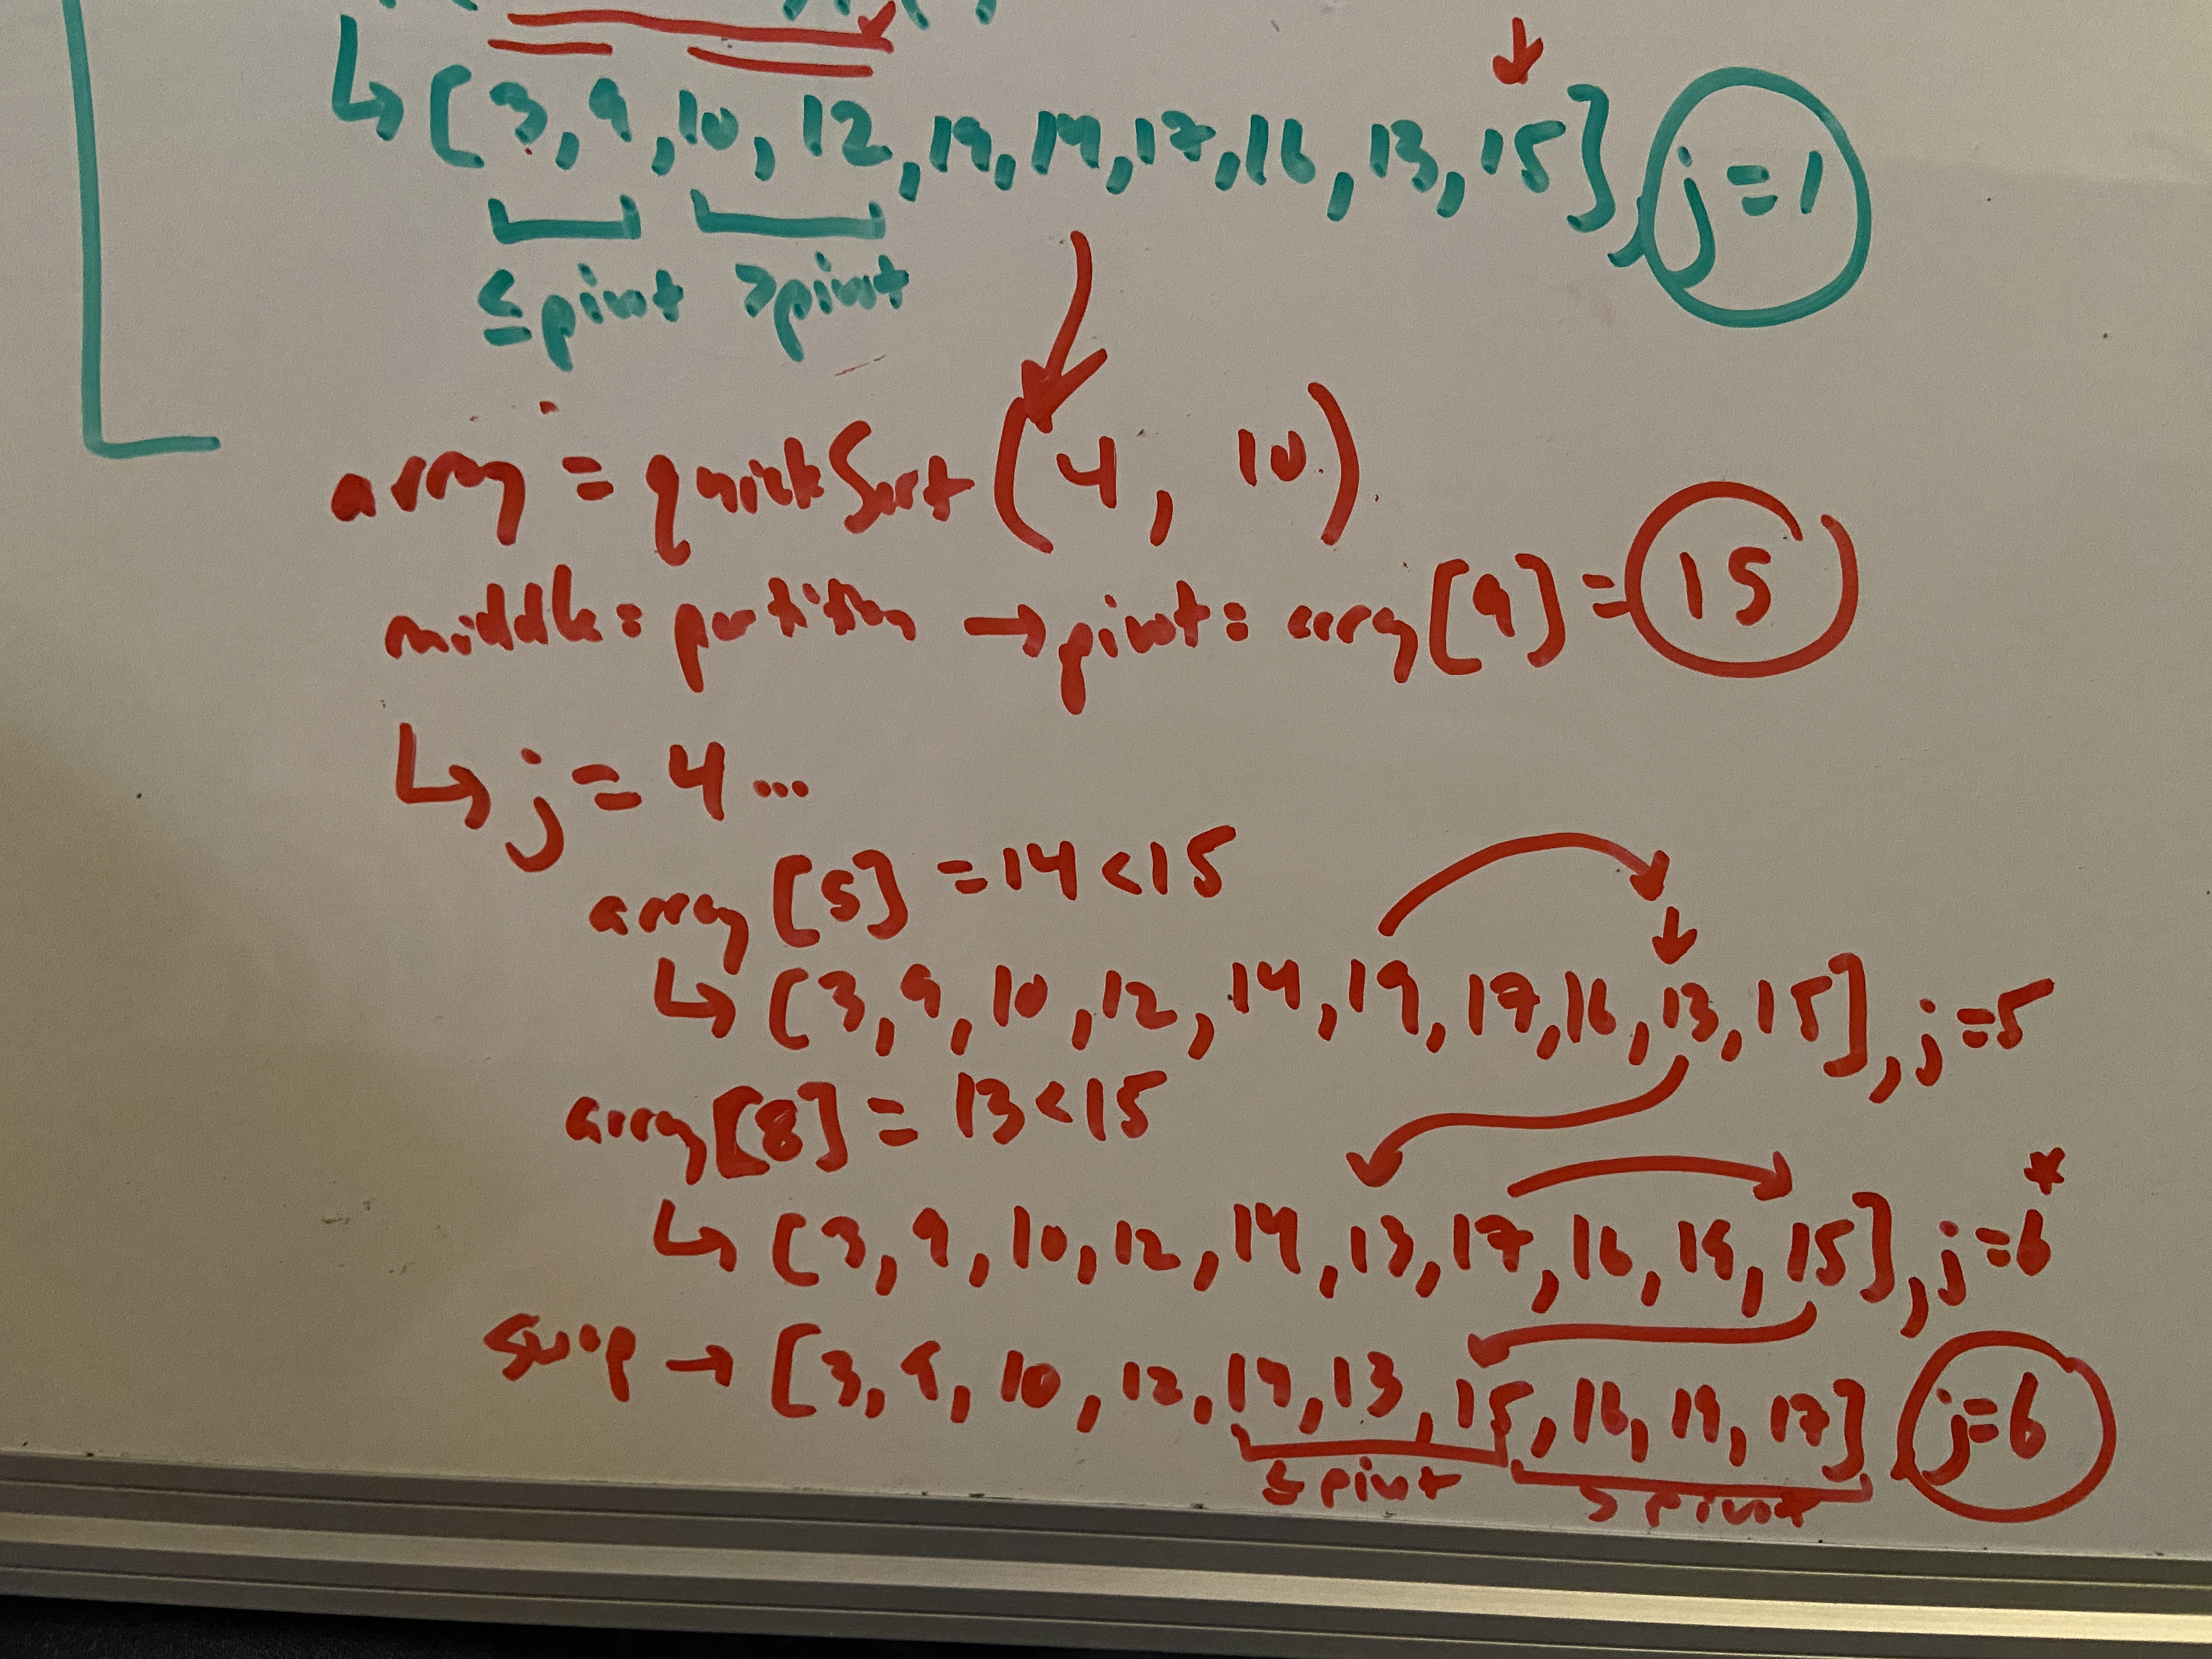 ↳ [3, 9, 10, 12, 19, 14, 17, 16, 13, 15], j=1
≤pivot >pivot
array = quickSort(4, 10)
middle = partition → pivot = array[9] = 15
↳ j = 4 ...
array[5] = 14 < 15
↳ [3, 9, 10, 12, 14, 19, 17, 16, 13, 15], j=5
array[8] = 13 < 15
↳ [3, 9, 10, 12, 14, 13, 17, 16, 19, 15], j=6*
swap → [3, 9, 10, 12, 14, 13, 15, 16, 19, 17] j=6
≤pivot >pivot